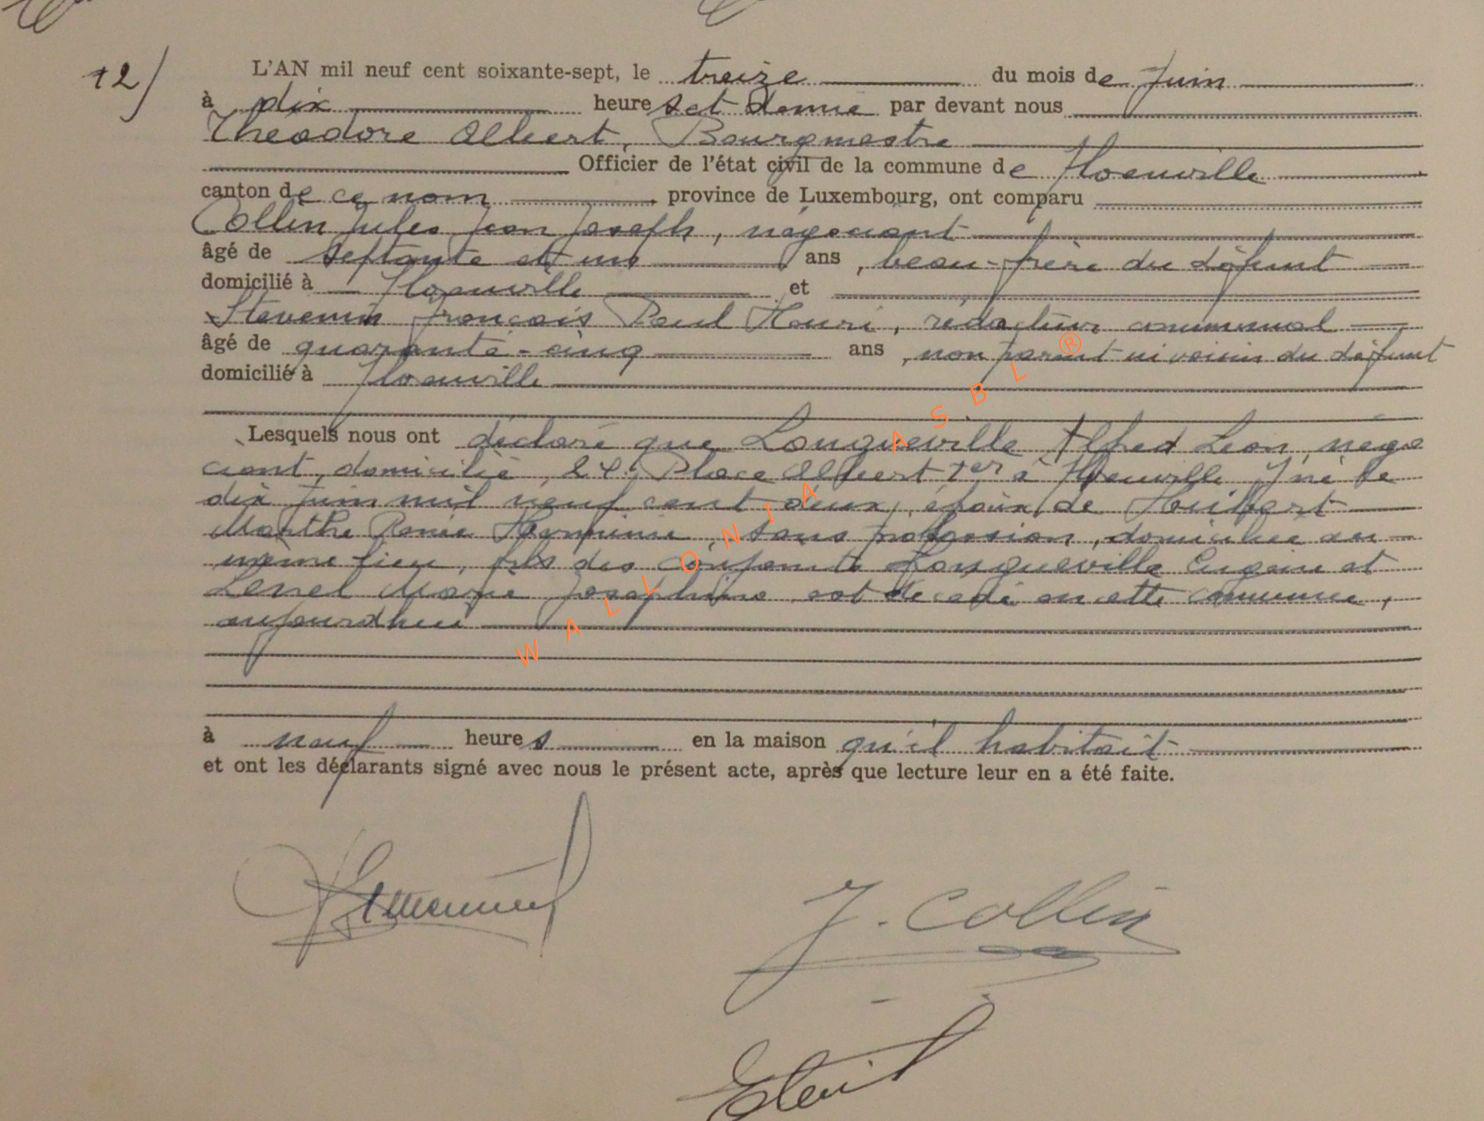 12)
L'AN mil neuf cent soixante-sept, le treize du mois de Juin
à dix heures et demie par devant nous
Théodore Albert, Bourgmestre
Officier de l'état civil de la commune de
canton de ce nom province de Luxembourg, ont comparu
Collin Jules Jean Joseph, négociant
âgé de septante et un ans, beau-frère du défunt
domicilié à et
Stevenin François Paul Henri, rédacteur communal
âgé de quarante-cinq ans, non parent ni voisin du défunt
domicilié à
Lesquels nous ont déclaré que Longueville Alfred Léon, négo
ciant, domicilié, Place Albert 1er à né le
dix Juin mil neuf cent deux, époux de
Marthe Renée Herminie, sans profession, domiciliée au
même lieu, fils des conjoints Longueville Eugène et
Marie Joséphine, est décédé en cette commune,
aujourdhui
à neuf heures en la maison qu'il habitait
et ont les déclarants signé avec nous le présent acte, après que lecture leur en a été faite.
J. Collin
WALLONIA ASBL ®